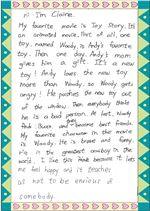 Hi I'm Claire.
My favorite movie is Toy Story. It's
an animated movie. First of all, one
toy, named Woody, is Andy's favorite
toy. Then one day, Andy's mom
gives him a gift. It's a new
toy! Andy loves the new toy
more than Woody, so Woody gets
angry! He pushes the new toy out
of the window. Then everybody thinks
he is a bad person. At last, Woody
and Buzz become best friends.
My favorite character in the movie
is Woody. He is brave and funny.
He is the greatest cowboy in the
world. I like this movie because it lets
me feel happy and it teaches
us not to be envious of
somebody.